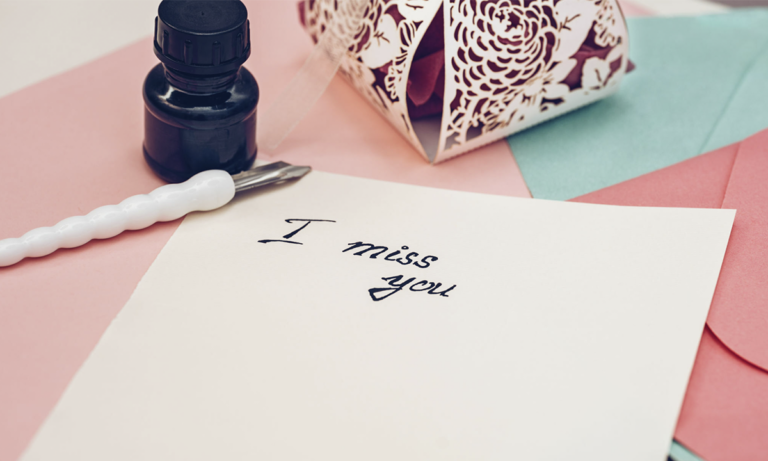 I miss
you